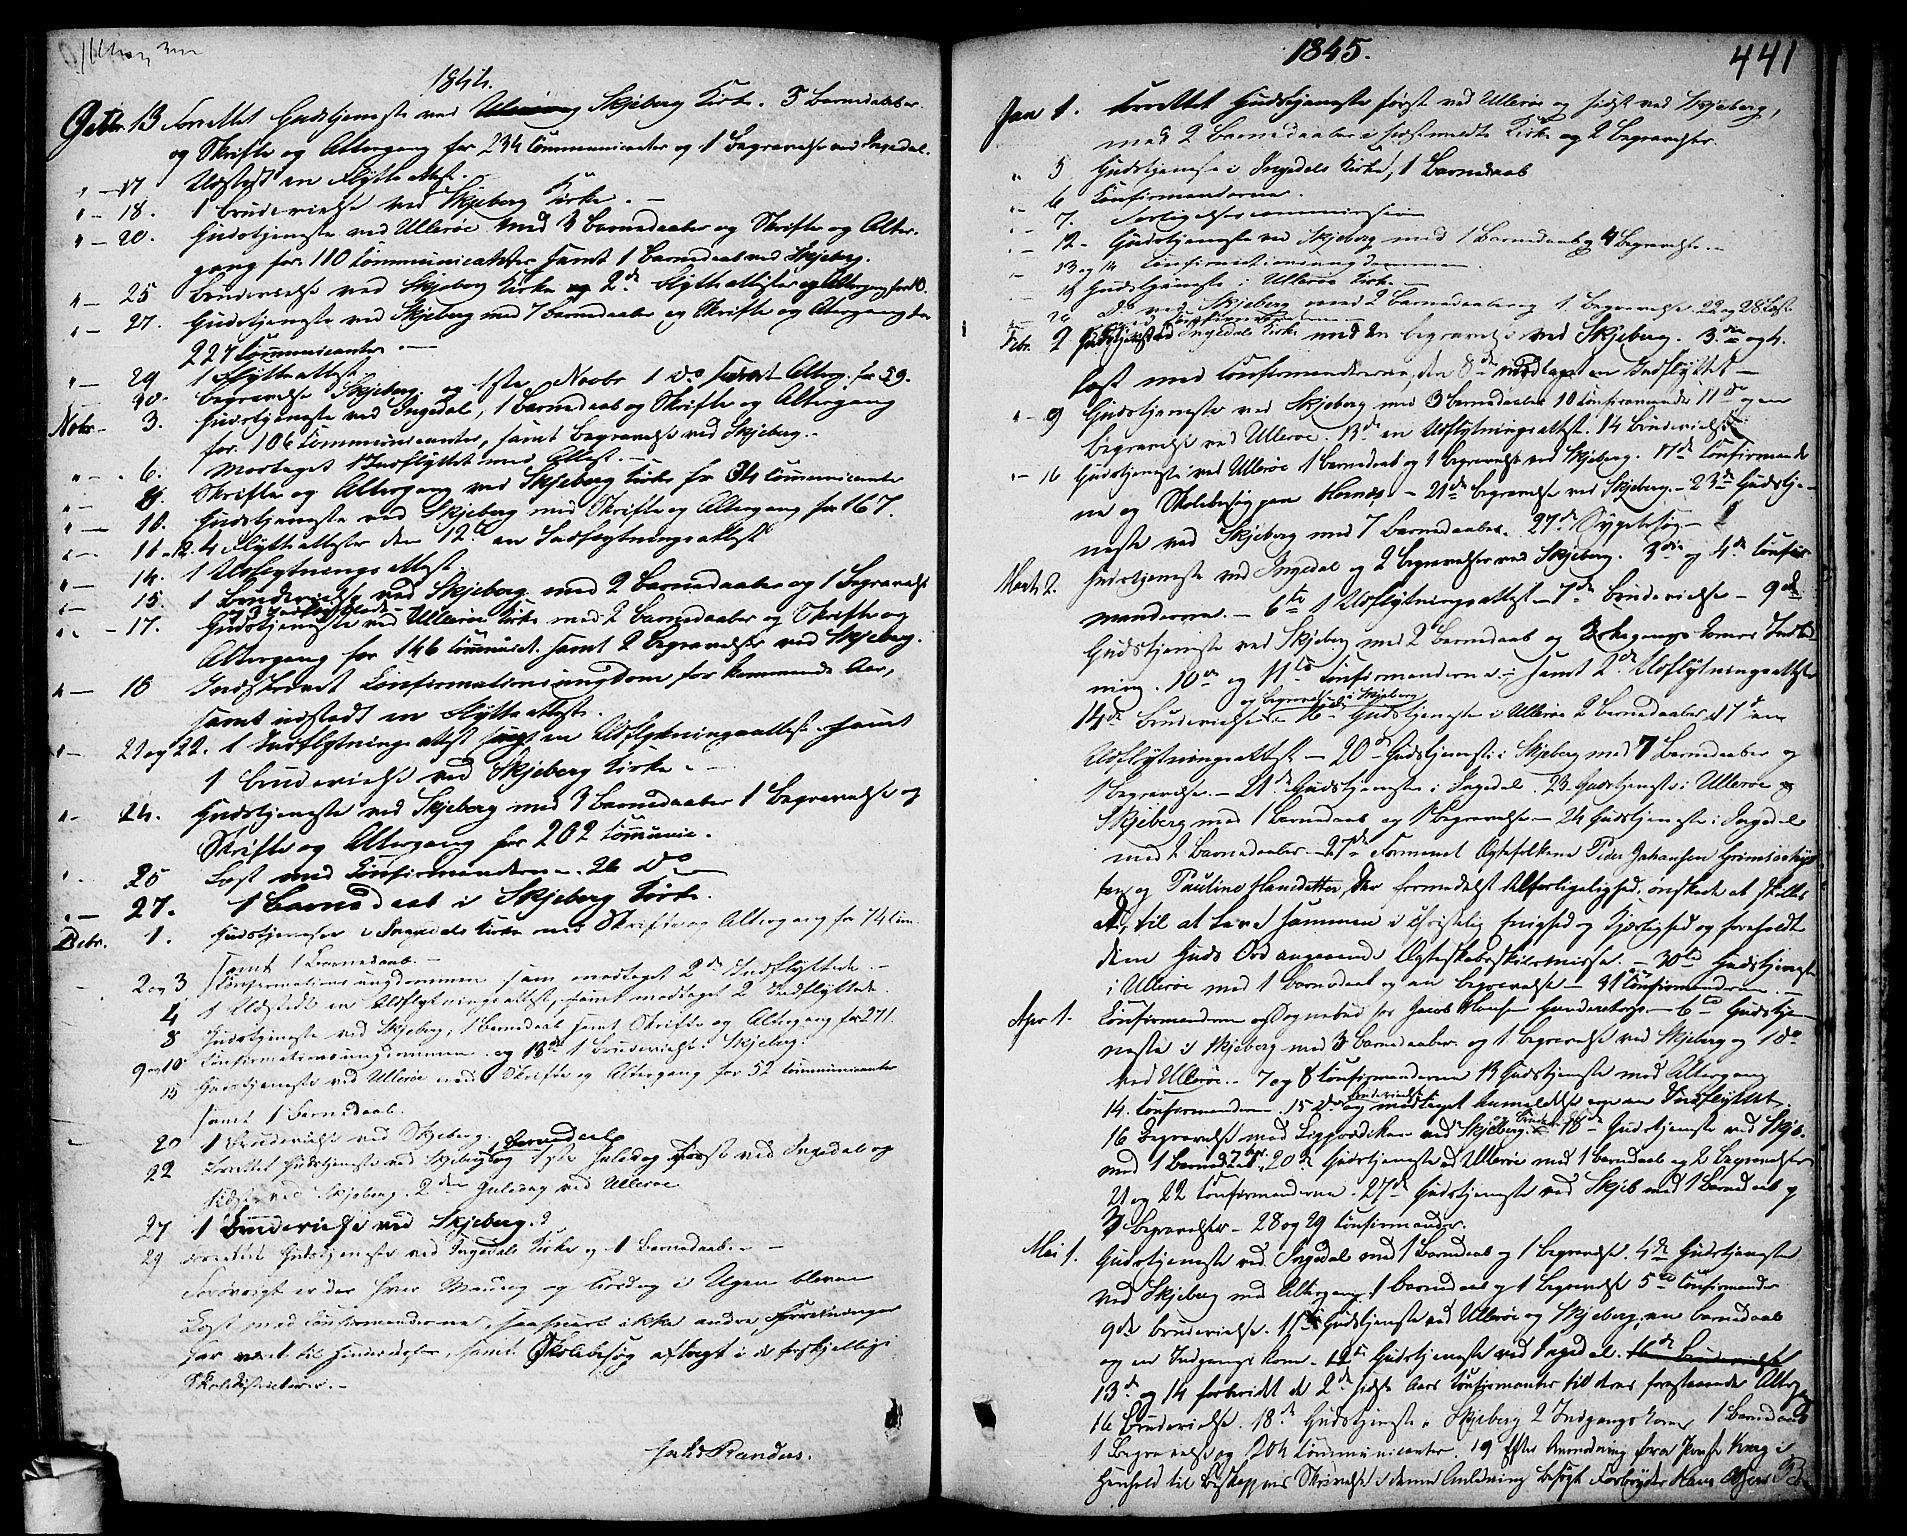 1844.
Octbr. 13 Forrettet Gudstjeneste ved Skjeberg Kirke. 5 Barnedaaber
og Skrifte og Altergang for 234 Communicanter og 1 Begravelse ved Ingedal.
" — 17 Udstedt en Flytteattest.
" — 18. 1 Brudevielse ved Skjeberg Kirke. —
" — 20. Gudstjeneste ved Ullerøe med 3 Barnedaaber og Skrifte og Alter-
gang for 110 Communicanter samt 1 Barnedaab ved Skjeberg.
" — 25 Brudevielse ved Skjeberg Kirke og 2de Flytteattester og Altergang for 10.
" — 27. Gudstjeneste ved Skjeberg med 7 Barnedaaber og Skrifte og Altergang for
227 Communicanter. —
" — 29 1 Flytteattest.
30. Begravelse Skjeberg og 1ste Novbr 1 do samt Alterg. for 29.
Novbr — 3. Gudstjeneste ved Ingedal, 1 Barnedaab og Skrifte og Altergang
for 106 Communicanter, samt Begravelse ved Skjeberg. —
" — 6. Modtaget 1 Indflyttet med Attest. —
" — 8. Skrifte og Altergang ved Skjeberg Kirke for 34 Communicanter
" — 10. Gudstjeneste ved Skjeberg med Skrifte og Altergang for 167.
" — 11 - 12. 4 Flytteattester den 12te en Indflytningsattest
" — 14. 1 Udflytningsattest.
" — 15. 1 Brudevielse ved Skjeberg med 2 Barnedaaber og 1 Begravelse
og 3 Indflyttede —
" — 17. Gudstjeneste ved Ullerøe Kirke med 2 Barnedaaber og Skrifte og
Altergang for 146 Communict. samt 2 Begravelser ved Skjeberg.
" — 18 Indskrevet Confirmationsungdom, for kommende Aar,
samt udstedt en Flytteattest.
" — 21 og 22. 1 Indflytningsattest samt en Udflytningsattest samt
1 Brudevielse ved Skjeberg Kirke. —
" — 24. Gudstjeneste ved Skjeberg med 3 Barnedaaber 1 Begravelse og
Skrifte og Altergang for 202 Communic.
25 Læst med Confirmanderne. 26 do
" — 27. 1 Barnedaab i Skjeberg Kirke.
Debr. 1. Gudstjeneste i Ingedals Kirke med Skrifte og Altergang for 74 Com.
samt 1 Barnedaab. —
2 og 3 Confirmationsungdommen, samt modtaget 2de Indflyttede. —
4 Udstedt en Udflytningsattest, samt modtaget 2 Indflyttede.
8 Gudstjeneste ved Skjeberg, 1 Barnedaab samt Skrifte og Altergang for 271.
9 og 10 Confirmationsungdommen og 13de 1 Brudevielse i Skjeberg.
15 Gudstjeneste ved Ullerøe med Skrifte og Altergang for 52 Communicanter
samt 1 Barnedaab.
20 1 Brudevielse ved Skjeberg. Barnedaab
22 Forrettet Gudstjeneste ved Skjeberg og 1ste Juledag først ved Ingedal og
sidst ved Skjeberg. 2den Juledag ved Ullerøe
27 1 Brudevielse ved Skjeberg.
29 Forrettet Gudstjeneste ved Ingedals Kirke og 1 Barnedaab. —
Forøvrigt er der hver Mandag og Tirsdag i Ugen bleven
Læst med Confirmanderne, saasnart ikke andre Forretninger
har været til Hinder derfor, samt Skolebesøg aflagt i de forskjellige
Skoledistricter. —
Randers.
1845.
441
Jan 1. Forrettet Gudstjeneste først ved Ullerøe og sidst ved Skjeberg,
med 2 Barnedaaber i sidstmeldte Kirke og 2 Begravelser.
" 5 Gudstjeneste i Ingedals Kirke, 1 Barnedaab
" 6 Confirmanderne.
7. Forligelsescommission
12. Gudstjeneste ved Skjeberg med 1 Barnedaab og 4 Begravelser
13 og 14 Confirmationsungdommen
Gudstjeneste i Ullerøe Kirke —
26 Do ved Skjeberg med 2 Barnedaaber og 1 Begravelse 22 og 28 Læst
Febr. 2 Gudstjeneste ved Ingedals Kirke med en Begravelse ved Skjeberg. 3die og 4.
Læst med Confirmanderne, den 8de modtaget en Indflyttet —
" — 9 Gudstjeneste ved Skjeberg med 3 Barnedaaber 10 Confirmander 11te og en
Begravelse ved Ullerøe. 13de en Udflytningsattest. 14 Brudevielse
" — 16 Gudstjeneste ved Ullerøe 1 Barnedaab og 1 Begravelse ved Skjeberg. 17de Confirmander
ne og Skolebesøg paa Hornæs — 21de Begravelse ved Skjeberg — 23de Gudstje-
neste ved Skjeberg med 7 Barnedaaber. 27de Sygebesøg —
Marts 2. Gudstjeneste ved Ingedal og 2 Begravelser ved Skjeberg. 3die og 4de Confir
manderne. — 6te 1 Udflytningsattest — 7de Brudevielse — 9de
Gudstjeneste ved Skjeberg med 2 Barnedaab og Kirkegangs Koners Indled
ning. 10de og 11te Confirmanderne — samt 2de Udflytningsattester
og Begravelse i Skjeberg
14de Brudevielse — 16de Gudstjeneste i Ullerøe 2 Barnedaaber, 17de en
Udflytningsattest — 20de Gudstjeneste i Skjeberg med 7 Barnedaaber og
1 Begravelse. — 21de Gudstjeneste i Ingedal. 23 Gudstjeneste i Ullerøe og
Skjeberg med 1 Barnedaab og 1 Begravelse — 24 Gudstjeneste i Ingedal
med 2 Barnedaaber — 27de Formanet Ægtefolkene Peder Johansen Grimsøe
og Pauline Hansdatter, der formedelst Uforligelighed ønskede at skilles
ad, til at leve sammen i christelig Enighed og Kjærlighed og foreholdt
dem Guds Ord angaaende Ægteskabsskilsmisse. — 30te Gudstjeneste
i Ullerøe med 1 Barnedaab og en Begravelse — 31 Confirmanderne. —
Apr 1. Confirmanderne og Sognebud for Jacob Hansen — 6te Gudstje-
neste i Skjeberg med 3 Barnedaaber og 1 Begravelse ved Skjeberg og 1 do
ved Ullerøe. — 7 og 8 Confirmanderne 13 Gudstjeneste med Altergang
14. Confirmanderne. 15 Do Brudevielse og modtaget Anmeldelse om en Indflyttet.
16 Begravelse med Ligprædiken ved Skjeberg. — 18de Gudstjeneste ved Skjeb.
med 1 Barnedaab. 20de Gudstjeneste ved Ullerøe med 1 Barnedaab og 2 Begravelser
21 og 22 Confirmanderne. 27de Gudstjeneste ved Skjeb med 1 Barnedaab og
3 Begravelser — 28 og 29 Confirmander.
Mai 1. Gudstjeneste ved Ingedal med 1 Barnedaab og 1 Begravelse. 4de Gudstjeneste
ved Skjeberg med Altergang, 1 Barnedaab og 1 Begravelse 5te Confirmander
9de Brudevielse. 11te Gudstjeneste ved Ullerøe og Skjeberg, en Barnedaab
og en Indgangs Kone — 12te Gudstjeneste ved Ingedal. 16de Brudevielse
13de og 14 forberedt de 2de sidste Aars Confirmanter til deres forestaaende Alterg
16 Brudevielse. 18de Gudstjeneste i Skjeberg 2 Indgangskoner 1 Barnedaab
1 Begravelse og 204 Communicanter. 19 Efter Anmodning fra Provst Krog i
Henhold til Biskoppens Skrivelse i denne Anledning besøgt Forbryder Hans